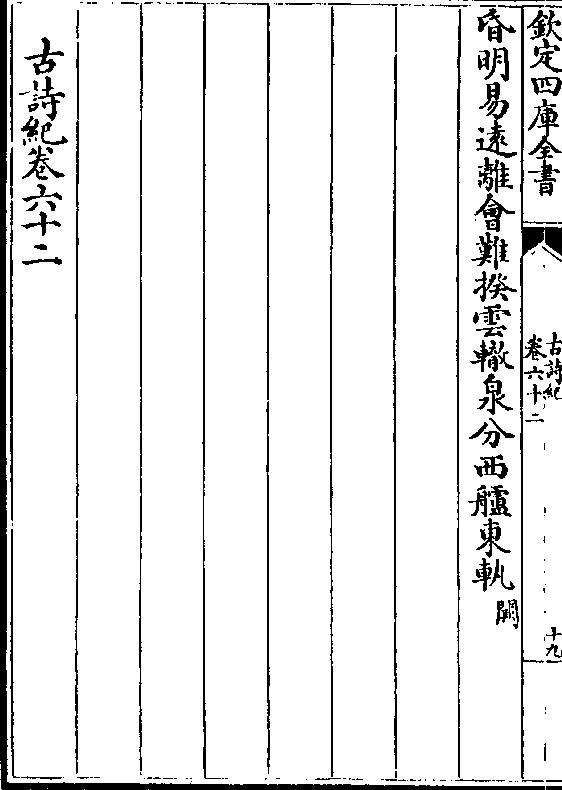 欽定四庫全書
古詩紀
卷六十二
十九
昏明易遠離會難揆雲轍泉分西艫東軌闕
古詩紀卷六十二